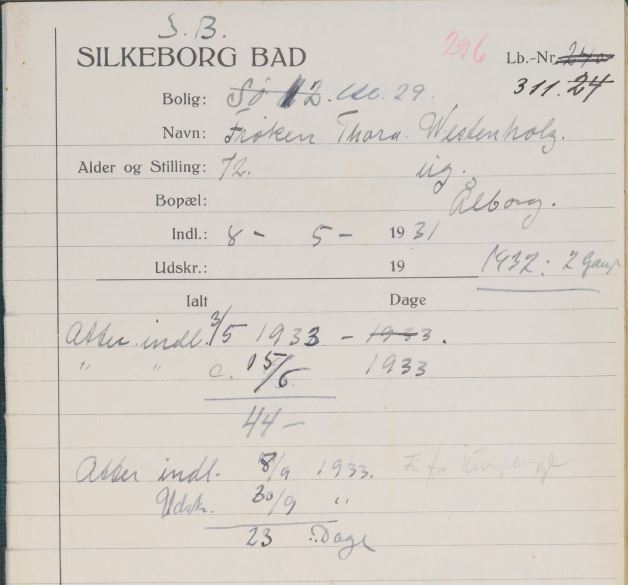 S. B.
SILKEBORG BAD
226 Lb.-Nr. 240
311. 24
Bolig: Sø 2. 29.
Navn: Frøken Thora Westenholz.
Alder og Stilling: 72. ug.
Bopæl: Ålborg.
Indl.: 8 - 5 - 19 31
Udskr.: 19 1932: 2 Gang
Ialt Dage
Atter indl. 3/5 1933 - 1933.
" " c. 15/6 1933
44 -
Atter indl. 8/9 1933. Fri for
Udskr. 30/9 "
23 Dage